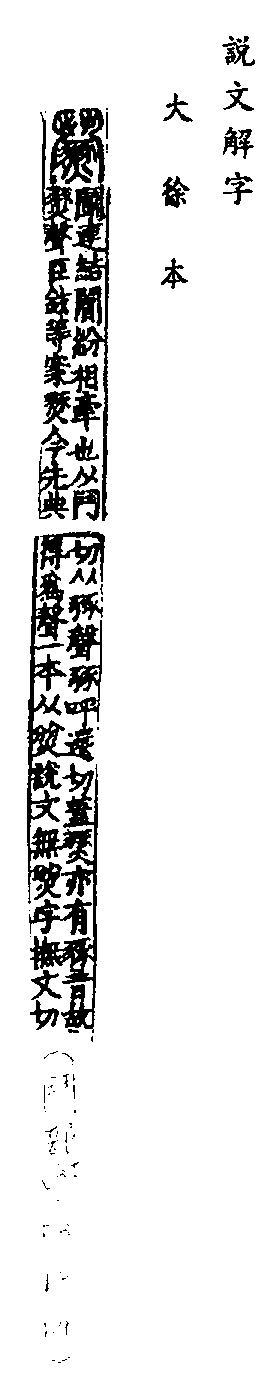 說文解字
大徐本
鬭連結紛相牽也从鬥
燹聲臣鉉等案燹今先典
切从豩聲豩呼還切蓋燹亦有豩音故
得爲聲一本从說文無字撫文切